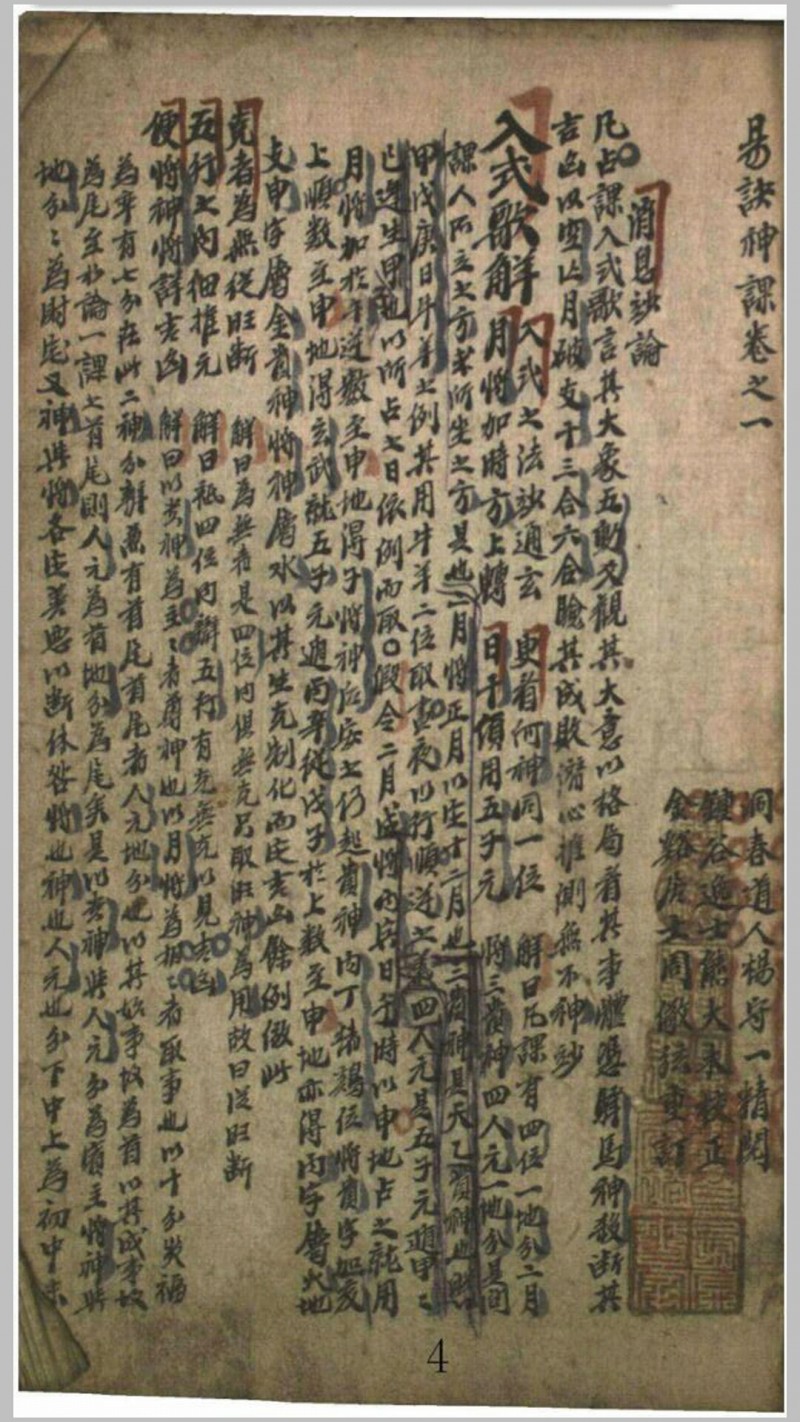 易訣神課卷之一
洞春道人楊守一精閱
鍾谷逸士熊大木校正
金谿居士周儆弦重訂
消息妙論
凡占課入式歌言其大象五動又觀其大意以格局看其事體憑驛馬神殺斷其
吉凶以空亡月破支干三合六合驗其成敗潛心推測無不神妙
入式歌解 入式之法妙通玄 更看何神同一位 解曰凡課有四位一地分二月
月將加時方上轉 日干須用五子元 將三貴神四人元一地分是問
課人所立之方來所坐之方是也二月將正月以 十二月也三貴神是天乙貴神也
甲戊庚日牛羊之例其用牛羊二位取晝夜以行順逆之 四人元是五子元遁甲
也以所占之日依例而取○假令二月 將丙寅日午時以申地占之就用
月將加於午逆數至申地得子將神后 之仍起貴神丙丁猪鷄位將貴字 亥
上順數至申地得玄武就五子元遁丙辛從戊子於上數至申地亦得丙字屬火地
支申字屬金貴神將神屬水以其生克制化而 吉凶餘例倣此
克者為無從旺斷 解曰為無者是四位內俱無克只取旺神為用故曰從旺斷
五行之內細推元 解曰祗四位內辯五行有克無克以見吉凶
便將神將詳吉凶 解曰以貴神為主々者尊神也以月將為 々者取事也以十分災福
為率有七分在此二神分辯焉有首尾首尾者人元地分也以其始事故為首以其成事故
為尾至於論一課之首尾則人元為首地分為尾矣是以貴神與人元分為賓主將神與
地分々為財宅又神與將各 善惡以斷休咎將也神也人元也分下中上為初中末
4